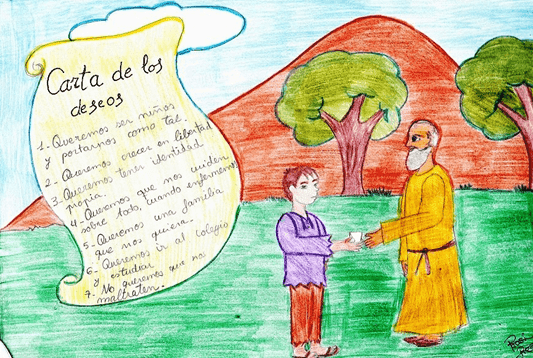 Carta de los
deseos
1- Queremos ser niños
y portarnos como tal.
2- Queremos crecer en libertad
3- Queremos tener identidad
propia.
4- Queremos que nos cuiden,
sobre todo, cuando enfermemos
5- Queremos una familia
que nos quiera.
6- Queremos ir al colegio
y estudiar
7- No queremos que nos
maltraten.